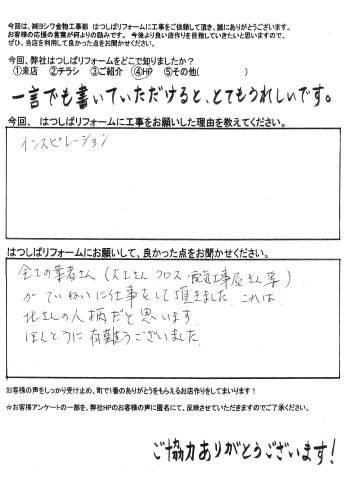 今回は、㈱ヨシワ金物工事部 はつしばリフォームに工事をご依頼して頂き、誠にありがとうございます。
お客様の応援の言葉が何よりの励みです。 今後より良い店作りを目指していきたいと思いますので、
ぜひ、当店を利用して良かった点をお聞かせください。
今回、弊社はつしばリフォームをどこで知りましたか?
①来店 ②チラシ ③ご紹介 ④HP ⑤その他( )
一言でも書いていただけると、とてもうれしいです。
今回、 はつしばリフォームに工事をお願いした理由を教えてください。
インスピレーション
はつしばリフォームにお願いして、良かった点をお聞かせください。
全ての業者さん(大工さん クロス・電気工事屋さん等)
がていねいに仕事をして頂きました これは
北さんの人柄だと思います
ほんとうに有難うございました
お客様の声をしっかり受け止め、町で1番のありがとうをもらえるお店作りをしてまいります!
☆お客様アンケートの一部を、弊社HPのお客様の声に匿名にて、反映させていただきますのでご了承ください。
ご協力ありがとうございます!